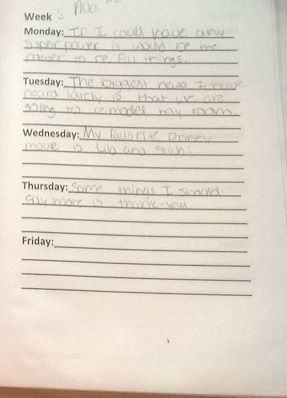 Week
Monday: If I could have any
super power it would be the
power to re fill things.
Tuesday: The biggest news I have
heard lately is that we are
going to remodel my room.
Wednesday: My favorite Disney
movie is Lilo and Stich!
Thursday: Some things I should
say more is thank-you.
Friday: